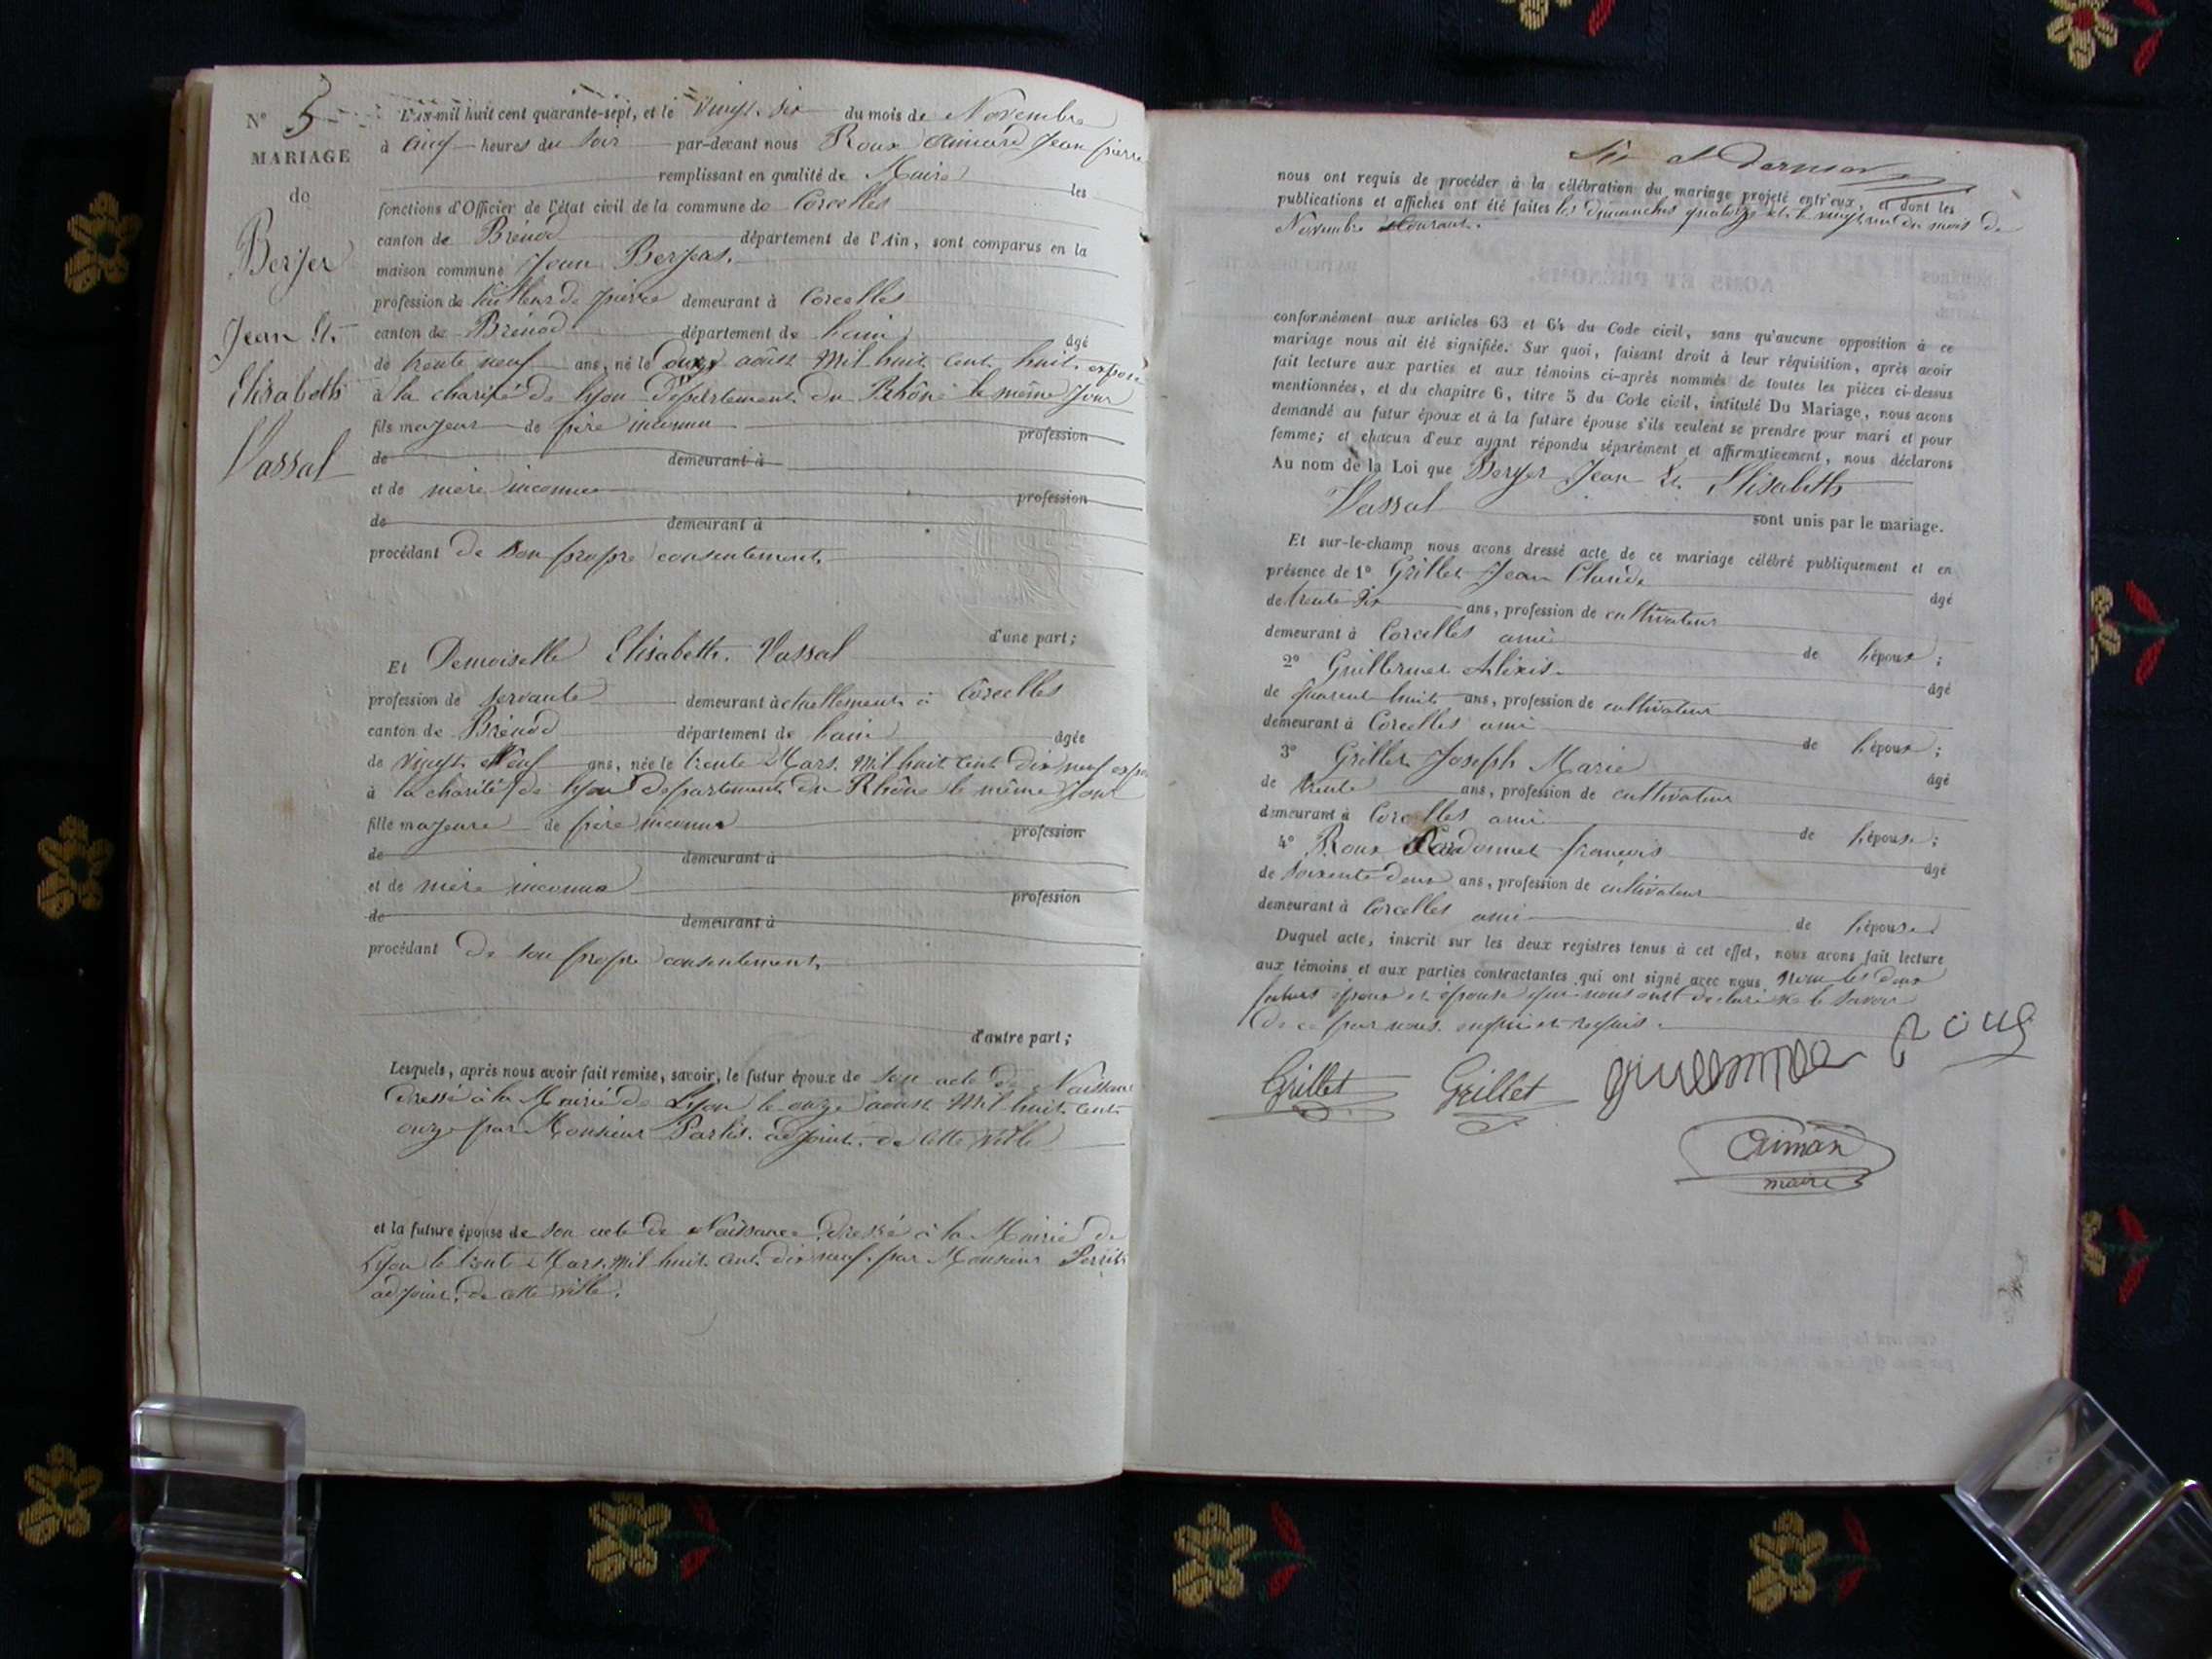 N° 5
MARIAGE
de
Berjer
Jean Et
Elisabeth
Vassal
L'AN mil huit cent quarante-sept, et le vingt six du mois de Novembre
à cinq heures du soir par-devant nous Roux Aimard Jean pierre
remplissant en qualité de Maire les
fonctions d'Officier de l'état civil de la commune de Corcelles
canton de Brénod département de l'Ain, sont comparus en la
maison commune Jean Berjeat,
profession de tailleur de pierre demeurant à Corcelles
canton de Brénod département de l'ain âgé
de trente neuf ans, né le onze août mil huit cent huit exposé
à la charité de lyon département du Rhône le même jour
fils majeur de père inconnu profession
de demeurant à
et de mère inconnue profession
de demeurant à
procédant de son propre consentement
d'une part;
Et Demoiselle Elisabeth Vassal
profession de servante demeurant actuellement à Corcelles
canton de Brénod département de l'ain âgée
de vingt neuf ans, née le trente Mars mil huit cent dix neuf
à la charité de lyon département du Rhône le même jour
fille majeure de père inconnu profession
de demeurant à
et de mère inconnue profession
de demeurant à
procédant de son propre consentement,
d'autre part;
Lesquels, après nous avoir fait remise, savoir, le futur époux de son acte de Naissance
dressé à la Mairie de Lyon le onze août mil huit cent
onze par Monsieur adjoint de cette ville
et la future épouse de son acte de Naissance dressé à la Mairie de
Lyon le trente Mars mil huit cent dix neuf par Monsieur
adjoint de cette ville.
Six et dernier
nous ont requis de procéder à la célébration du mariage projeté entr'eux, et dont les
publications et affiches ont été faites les dimanches quatorze et le vingt un du mois de
Novembre Courant.
conformément aux articles 63 et 64 du Code civil, sans qu'aucune opposition à ce
mariage nous ait été signifiée. Sur quoi, faisant droit à leur réquisition, après avoir
fait lecture aux parties et aux témoins ci-après nommés de toutes les pièces ci-dessus
mentionnées, et du chapitre 6, titre 5 du Code civil, intitulé Du Mariage, nous avons
demandé au futur époux et à la future épouse s'ils veulent se prendre pour mari et pour
femme; et chacun d'eux ayant répondu séparément et affirmativement, nous déclarons
Au nom de la Loi que Berjer Jean Et Elisabeth
Vassal sont unis par le mariage.
Et sur-le-champ nous avons dressé acte de ce mariage célébré publiquement et en
présence de 1° Grillet Jean Claude âgé
de trente six ans, profession de cultivateur
demeurant à Corcelles ami de l'époux;
2° Guillermet Alexis âgé
de quarent huit ans, profession de cultivateur
demeurant à Corcelles ami de l'époux;
3° Grillet Joseph Marie âgé
de trente ans, profession de cultivateur
demeurant à Corcelles ami de l'épouse;
4° Roux françois âgé
de soixente deux ans, profession de cultivateur
demeurant à Corcelles ami de l'épouse
Duquel acte, inscrit sur les deux registres tenus à cet effet, nous avons fait lecture
aux témoins et aux parties contractantes qui ont signé avec nous non les deux
futurs époux et épouse qui nous ont déclaré ne le savoir
de ce par nous enquis et requis.
Grillet Grillet Roux
Aimar
maire